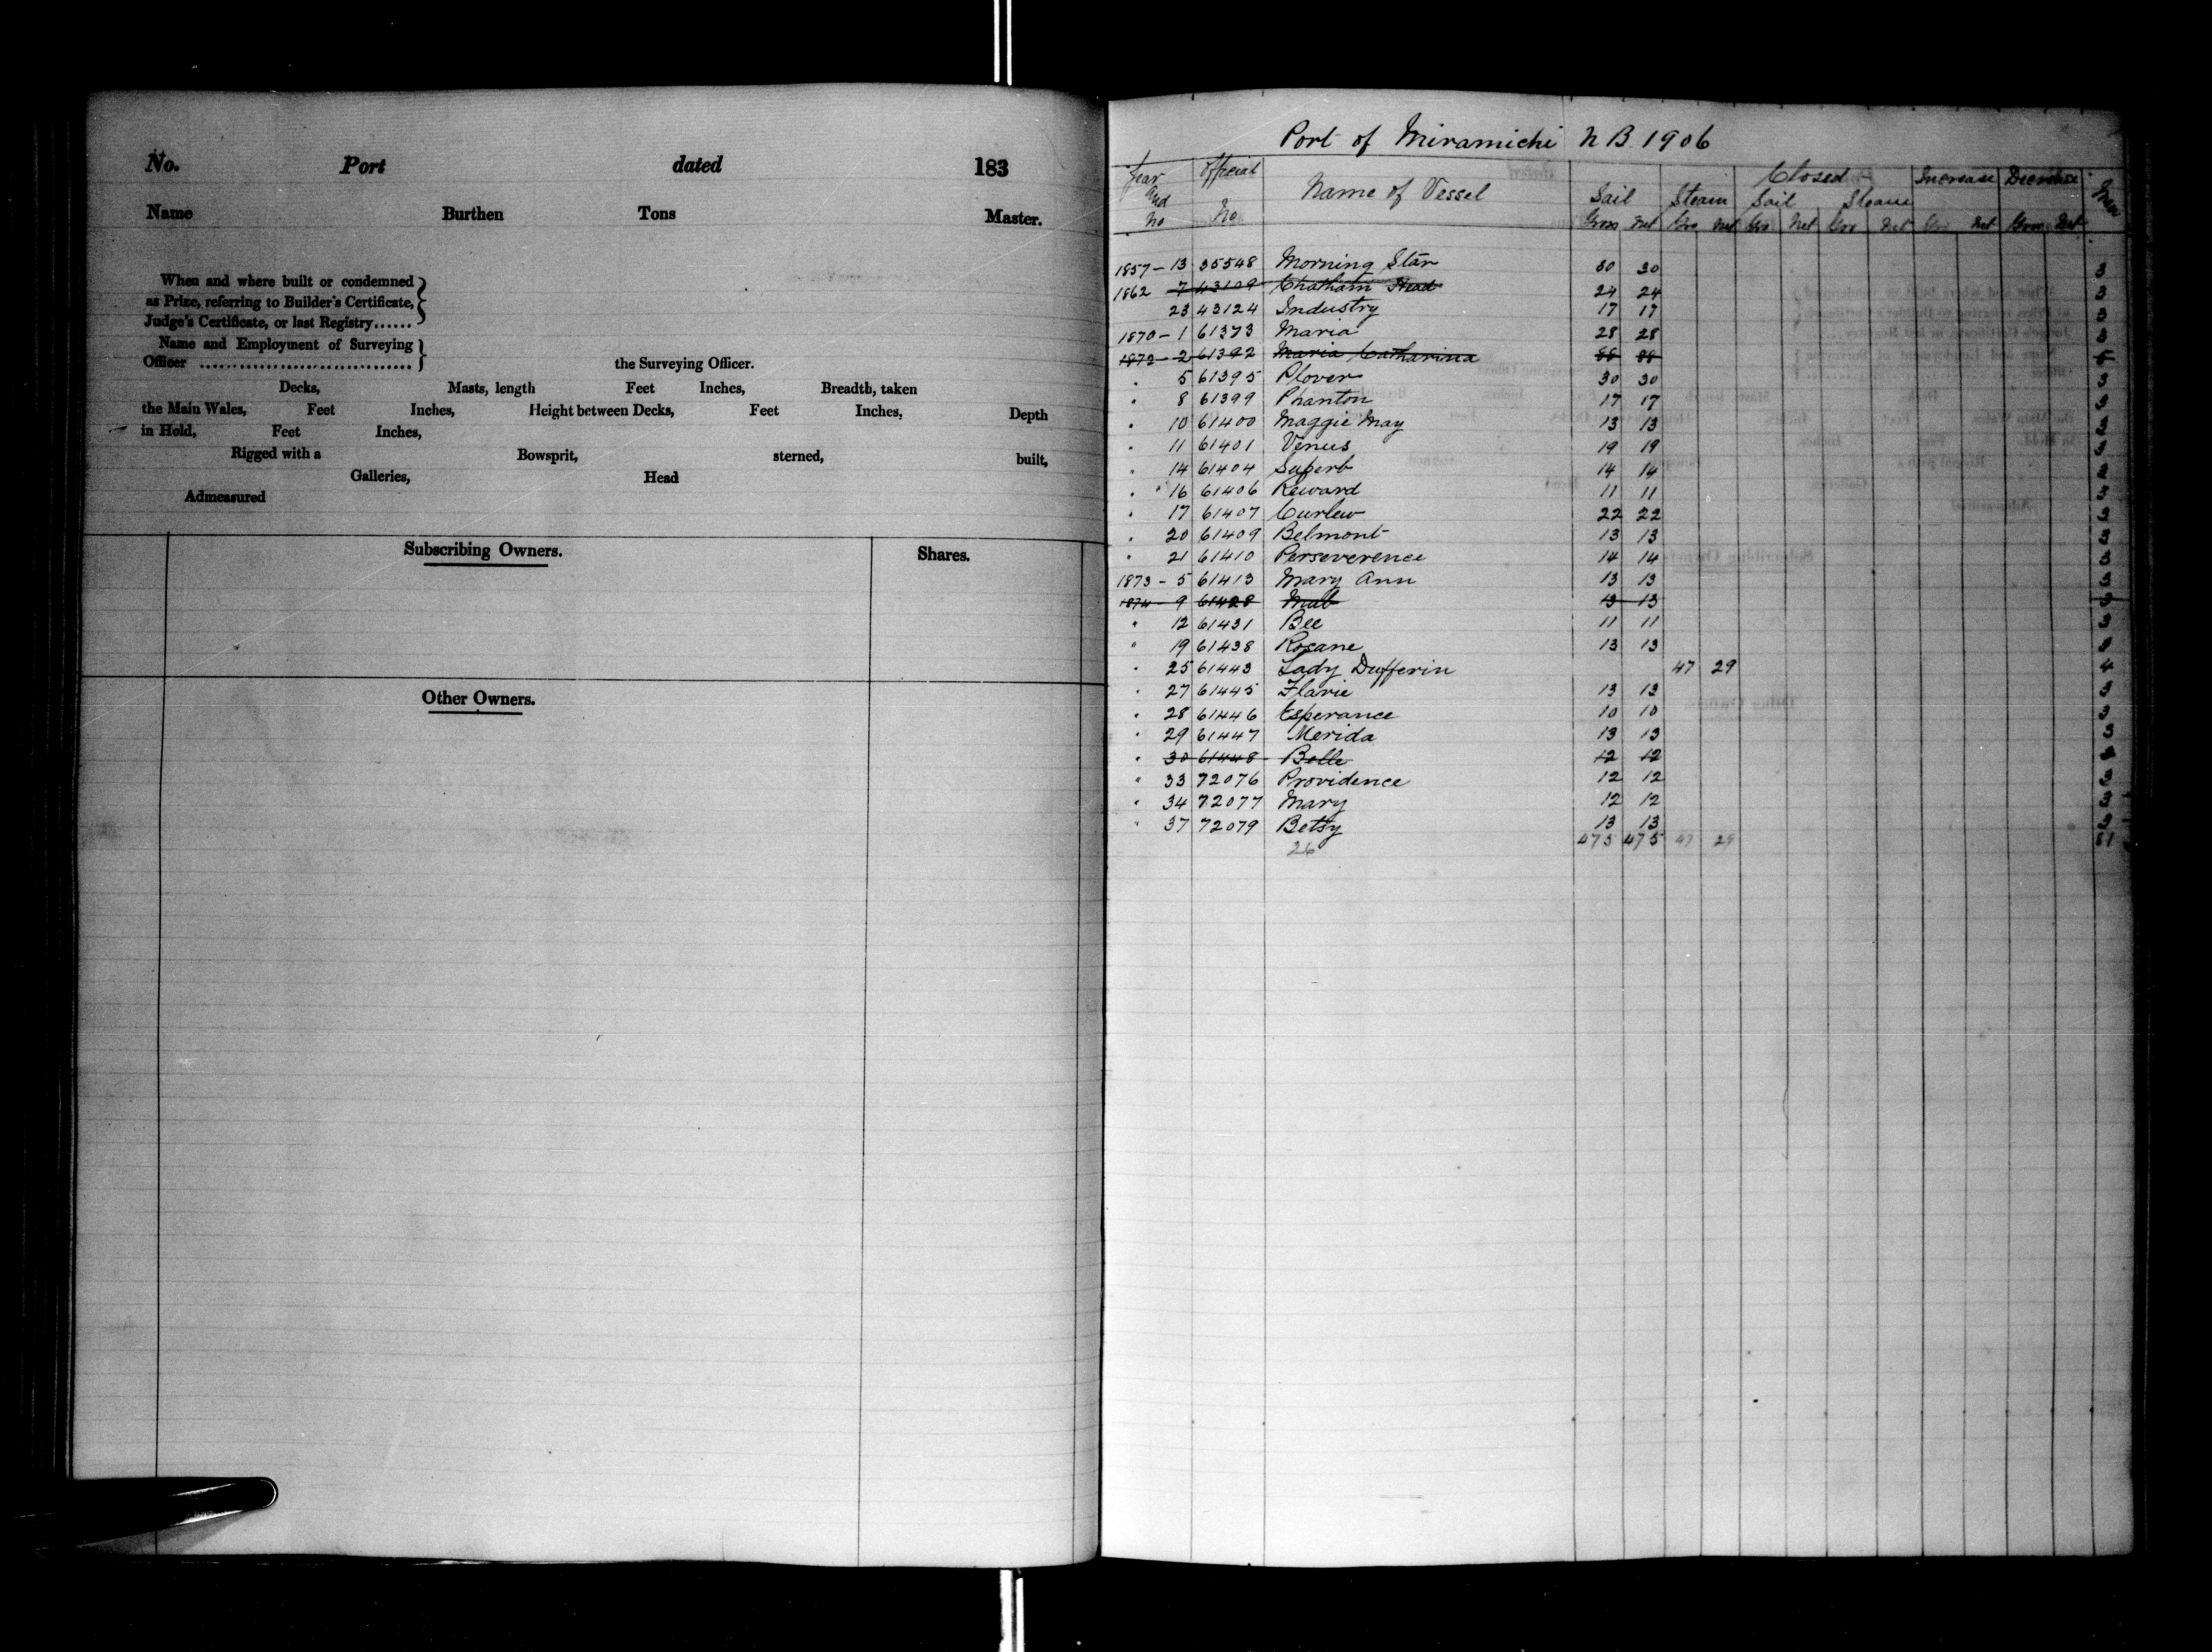 No. Port dated 183
Name Burthen Tons Master.
When and where built or condemned
as Prize, referring to Builder's Certificate,
Judge's Certificate, or last Registry......
Name and Employment of Surveying
Officer .................................... the Surveying Officer.
Decks, Masts, length Feet Inches, Breadth, taken
the Main Wales, Feet Inches, Height between Decks, Feet Inches, Depth
in Hold, Feet Inches,
Rigged with a Bowsprit, sterned, built,
Galleries, Head
Admeasured
Subscribing Owners. Shares.
Other Owners.
Port of Miramichi N B. 1906
Year and No Official No Name of Vessel Sail Steam Closed Sail Steam Increase Decrease Men
Gross Net Gro Net Gro Net Gro Net Gro Net Gross Net
1857 - 13 35548 Morning Star 30 30 3
1862 7 43109 Chatham Head 24 24 3
23 43124 Industry 17 17 3
1870 - 1 61373 Maria 28 28 3
1872 - 2 61392 Maria Catharina 88 88
" 5 61395 Plover 30 30 3
" 8 61399 Phanton 17 17 3
" 10 61400 Maggie May 13 13 3
" 11 61401 Venus 19 19 3
" 14 61404 Superb 14 14 3
" 16 61406 Reward 11 11 3
" 17 61407 Curlew 22 22 3
" 20 61409 Belmont 13 13 3
" 21 61410 Perseverence 14 14 3
1873 - 5 61413 Mary Ann 13 13 3
1874 - 9 61428 Mab 13 13 3
" 12 61431 Bee 11 11 3
" 19 61438 Rosane 13 13 3
" 25 61443 Lady Dufferin 47 29 4
" 27 61445 Flavie 13 13 3
" 28 61446 Esperance 10 10 3
" 29 61447 Merida 13 13 3
" 30 61448 Belle 12 12 3
" 33 72076 Providence 12 12 3
" 34 72077 Mary 12 12 3
" 37 72079 Betsy 13 13 3
26 475 475 47 29